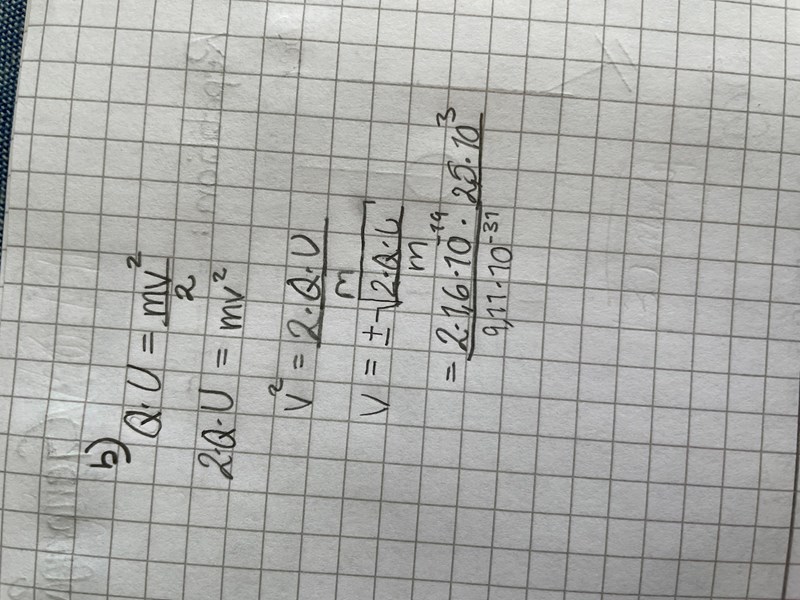 b)
Q·U = mv²/2
2·Q·U = mv²
v² = 2·Q·U/m
v = ±√(2·Q·U/m)
= 2·1,6·10⁻¹⁹·25·10³/9,11·10⁻³¹